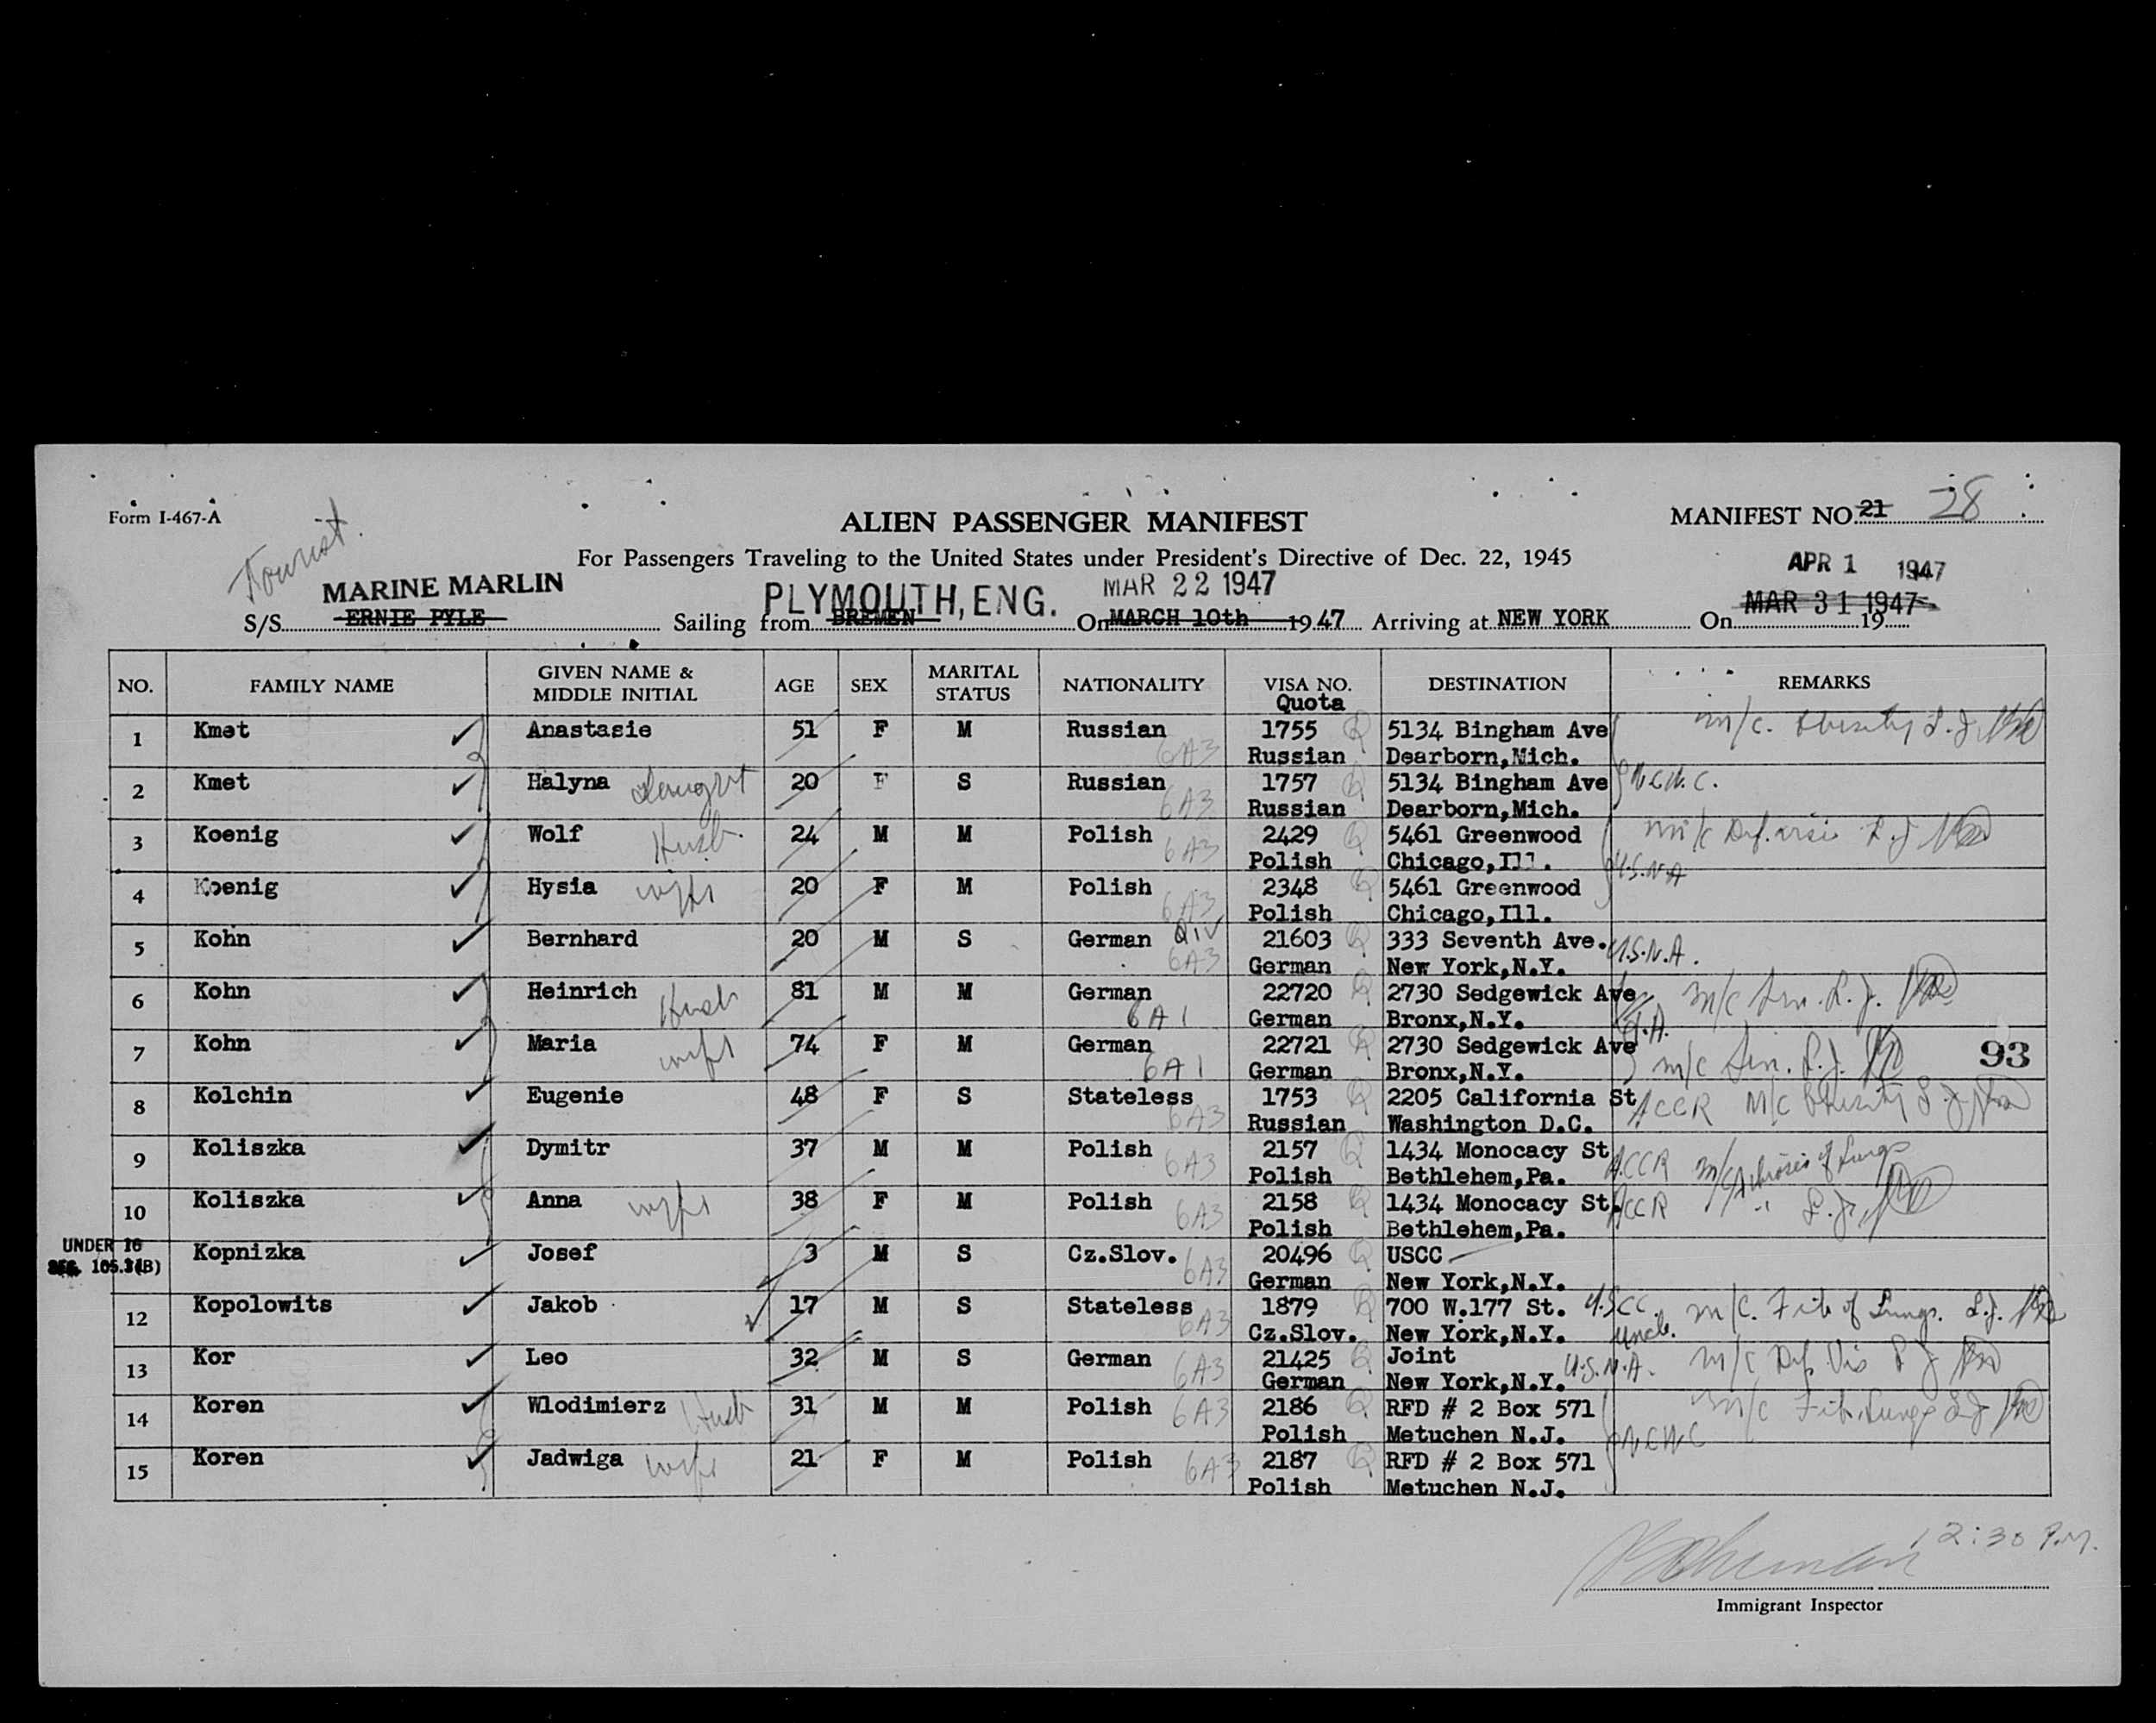 Form I-467-A
ALIEN PASSENGER MANIFEST
MANIFEST NO. 21 28
For Passengers Traveling to the United States under President's Directive of Dec. 22, 1945
APR 1 1947
Tourist.
MARINE MARLIN PLYMOUTH, ENG. MAR 22 1947 MAR 31 1947
S/S ERNIE PYLE Sailing from BREMEN On MARCH 10th 1947 Arriving at NEW YORK On 19
NO. FAMILY NAME GIVEN NAME & MIDDLE INITIAL AGE SEX MARITAL STATUS NATIONALITY VISA NO. Quota DESTINATION REMARKS
1 Kmet Anastasie 51 F M Russian 6A3 1755 Q 5134 Bingham Ave m/c. Obesity L.J.
Russian Dearborn,Mich.
2 Kmet Halyna 20 F S Russian 6A3 1757 Q 5134 Bingham Ave N.C.W.C.
Russian Dearborn,Mich.
3 Koenig Wolf Husb. 24 M M Polish 6A3 2429 Q 5461 Greenwood m/c Def. L.J.
Polish Chicago,Ill. U.S.N.A
4 Koenig Hysia wife 20 F M Polish 6A3 2348 Q 5461 Greenwood
Polish Chicago,Ill.
5 Kohn Bernhard 20 M S German Div 6A3 21603 Q 333 Seventh Ave. U.S.N.A.
German New York,N.Y.
6 Kohn Heinrich Husb 81 M M German 6A1 22720 Q 2730 Sedgewick Ave m/c Sen. L.J.
German Bronx,N.Y.
7 Kohn Maria wife 74 F M German 6A1 22721 Q 2730 Sedgewick Ave m/c Sen. L.J. 93
German Bronx,N.Y.
8 Kolchin Eugenie 48 F S Stateless 6A3 1753 Q 2205 California St ACCR M/C Obesity L.J.
Russian Washington D.C.
9 Koliszka Dymitr 37 M M Polish 6A3 2157 Q 1434 Monocacy St ACCR m/c of Lungs
Polish Bethlehem,Pa.
10 Koliszka Anna wife 38 F M Polish 6A3 2158 Q 1434 Monocacy St. ACCR " L.J.
Polish Bethlehem,Pa.
UNDER 16 Kopnizka Josef 3 M S Cz.Slov. 6A3 20496 Q USCC
SEC. 105.3(B) German New York,N.Y.
12 Kopolowits Jakob 17 M S Stateless 6A3 1879 Q 700 W.177 St. U.S.C.C. m/c. Fib of Lungs. L.J.
Cz.Slov. New York,N.Y. Uncle.
13 Kor Leo 32 M S German 6A3 21425 Q Joint U.S.N.A. m/c Def. Vis L J
German New York,N.Y.
14 Koren Wlodimierz Husb 31 M M Polish 6A3 2186 Q RFD # 2 Box 571 m/c Fib. Lungs L J
Polish Metuchen N.J. N.C.W.C
15 Koren Jadwiga wife 21 F M Polish 6A3 2187 Q RFD # 2 Box 571
Polish Metuchen N.J.
12:30 P.M.
Immigrant Inspector